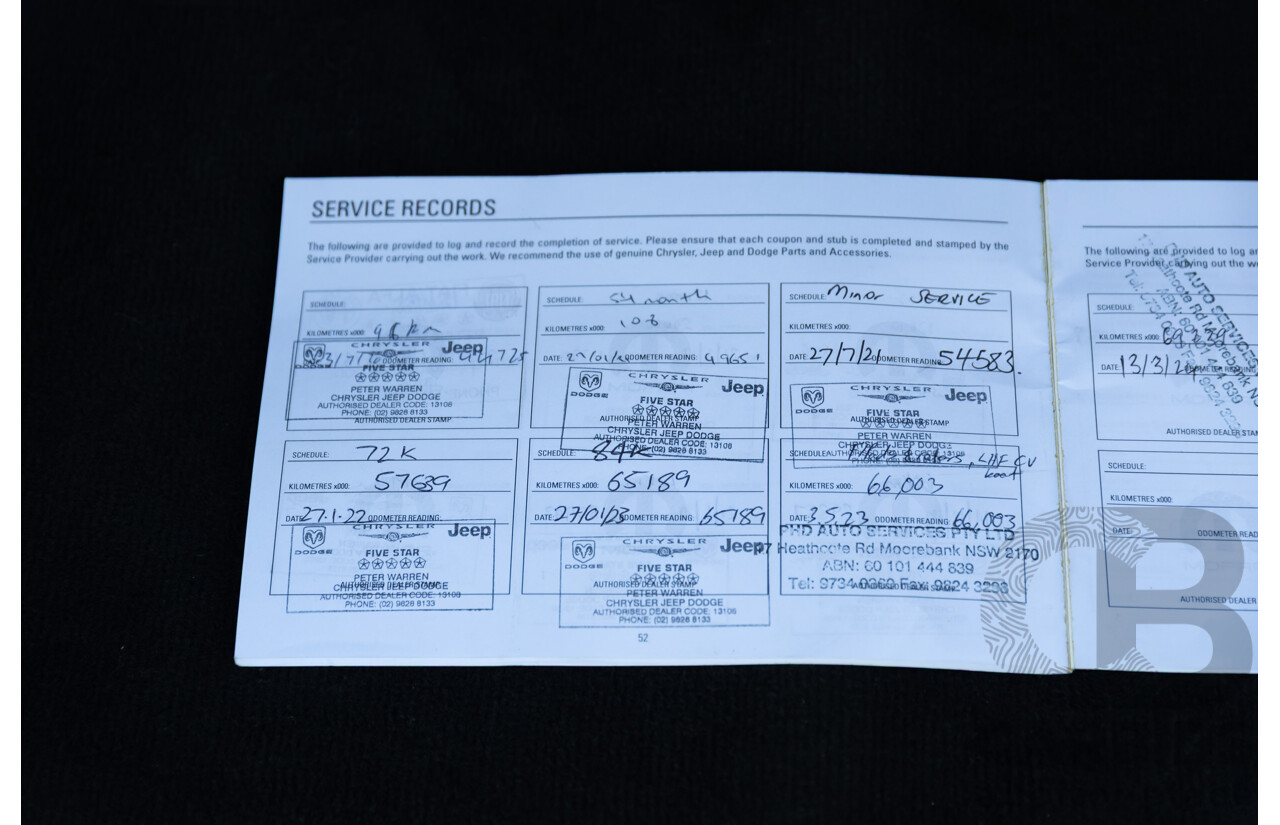 SERVICE RECORDS
The following are provided to log and record the completion of service. Please ensure that each coupon and stub is completed and stamped by the
Service Provider carrying out the work. We recommend the use of genuine Chrysler, Jeep and Dodge Parts and Accessories.
SCHEDULE:
KILOMETRES x000: 96 km
ODOMETER READING:
CHRYSLER Jeep
DODGE
FIVE STAR
PETER WARREN
CHRYSLER JEEP DODGE
AUTHORISED DEALER CODE: 13108
PHONE: (02) 9828 8133
AUTHORISED DEALER STAMP
month
KILOMETRES x000: 108
DATE: ODOMETER READING: 49651
CHRYSLER Jeep
DODGE
FIVE STAR
AUTHORISED DEALER STAMP
PETER WARREN
CHRYSLER JEEP DODGE
AUTHORISED DEALER CODE: 13108
PHONE: (02) 9828 8133
SCHEDULE: Minor SERVICE
KILOMETRES x000:
DATE: 27/7/20 ODOMETER READING: 54583.
CHRYSLER Jeep
DODGE
FIVE STAR
AUTHORISED DEALER STAMP
PETER WARREN
CHRYSLER JEEP DODGE
SCHEDULE: 72 K
KILOMETRES x000: 57689
DATE: 27.1.22 ODOMETER READING:
CHRYSLER Jeep
DODGE
FIVE STAR
PETER WARREN
CHRYSLER JEEP DODGE
AUTHORISED DEALER CODE: 13108
PHONE: (02) 9828 8133
SCHEDULE: 84K
KILOMETRES x000: 65189
DATE: 27/01/23 ODOMETER READING: 65189
CHRYSLER Jeep
DODGE
FIVE STAR
AUTHORISED DEALER STAMP
PETER WARREN
CHRYSLER JEEP DODGE
AUTHORISED DEALER CODE: 13108
PHONE: (02) 9828 8133
SCHEDULE: LHF CV
boot
KILOMETRES x000: 66,003
DATE: 3.5.23 ODOMETER READING: 66,003
PHD AUTO SERVICES PTY LTD
Heathcote Rd Moorebank NSW 2170
ABN: 60 101 444 839
Tel: 9734 Fax: 9824
52
The following are provided to log
Service Provider carrying out the
SCHEDULE:
KILOMETRES x000:
DATE: 13/3/
AUTO SERVICES
Heathcote Rd
AUTHORISED DEALER
SCHEDULE:
KILOMETRES x000:
DATE: ODOMETER
AUTHORISED DEALER
CB